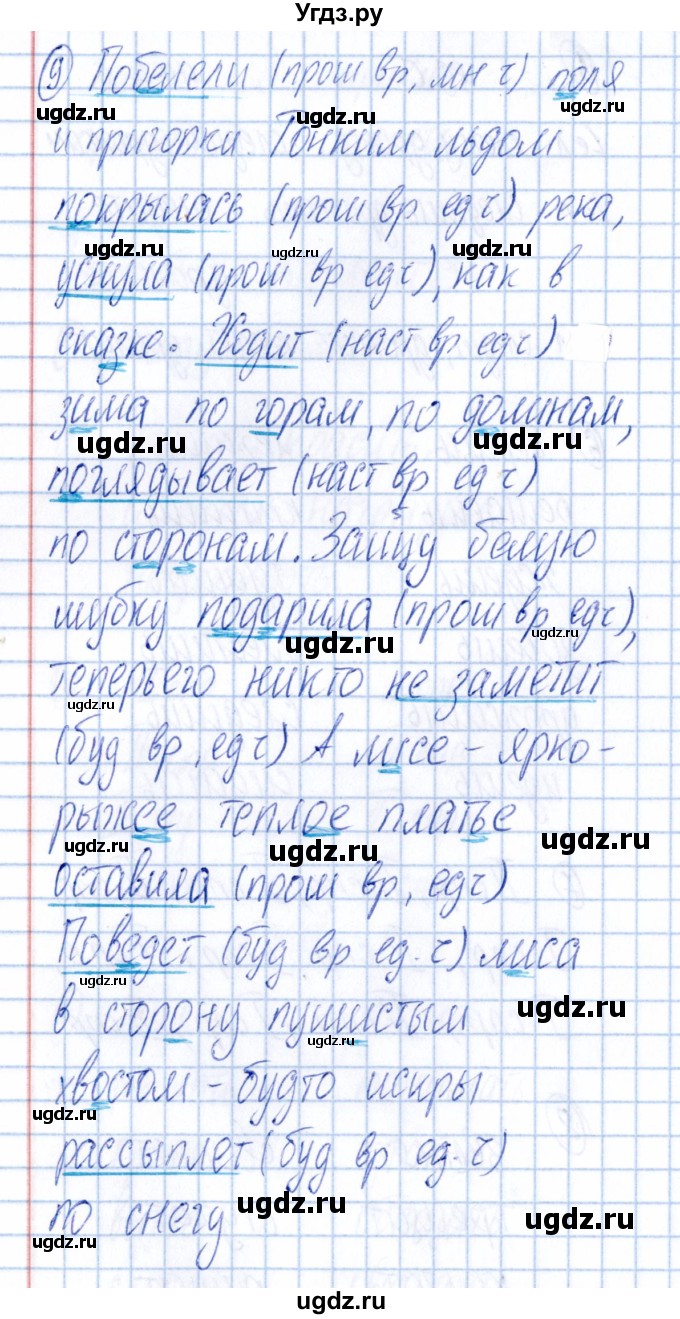 Угдз.ру
9 Побелели (прош вр, мн ч) поля
ugdz.ru ugdz.ru ugdz.ru
и пригорки. Тонким льдом
покрылась (прош вр ед ч) река,
ugdz.ru ugdz.ru ugdz.ru
уснула (прош вр ед ч), как в
сказке. Ходит (наст вр ед ч)
зима по горам, по долинам,
ugdz.ru ugdz.ru ugdz.ru
поглядывает (наст вр ед ч)
по сторонам. Зайцу белую
шубку подарила (прош вр ед ч),
ugdz.ru ugdz.ru
теперь его никто не заметит
ugdz.ru ugdz.ru
(буд вр, ед ч) А лисе - ярко-
рыжее теплое платье
ugdz.ru ugdz.ru ugdz.ru
оставила (прош вр, ед ч)
Поведет (буд вр ед. ч) лиса
ugdz.ru ugdz.ru
в сторону пушистым
ugdz.ru
хвостом - будто искры
ugdz.ru ugdz.ru
рассыплет (буд вр ед. ч)
по снегу
ugdz.ru ugdz.ru ugdz.ru
ugdz.ru